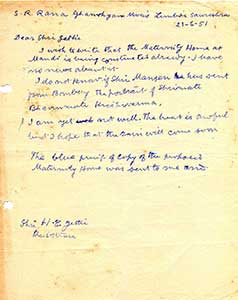 S. R. Rana Ghanshyam Nivas Limbdi Saurashtra
21-6-51
Dear Shri Jethi
I wish to write that the Maternity Home at
is being constructed already. I have
no news about it.
I do not know if Shri Mansen has sent
from Bombay the portrait of Shrimati
I am yet not well. The heat is awful
and I hope that the rain will come soon
The blue print of copy of the proposed
Maternity Home was sent to me and
Shri